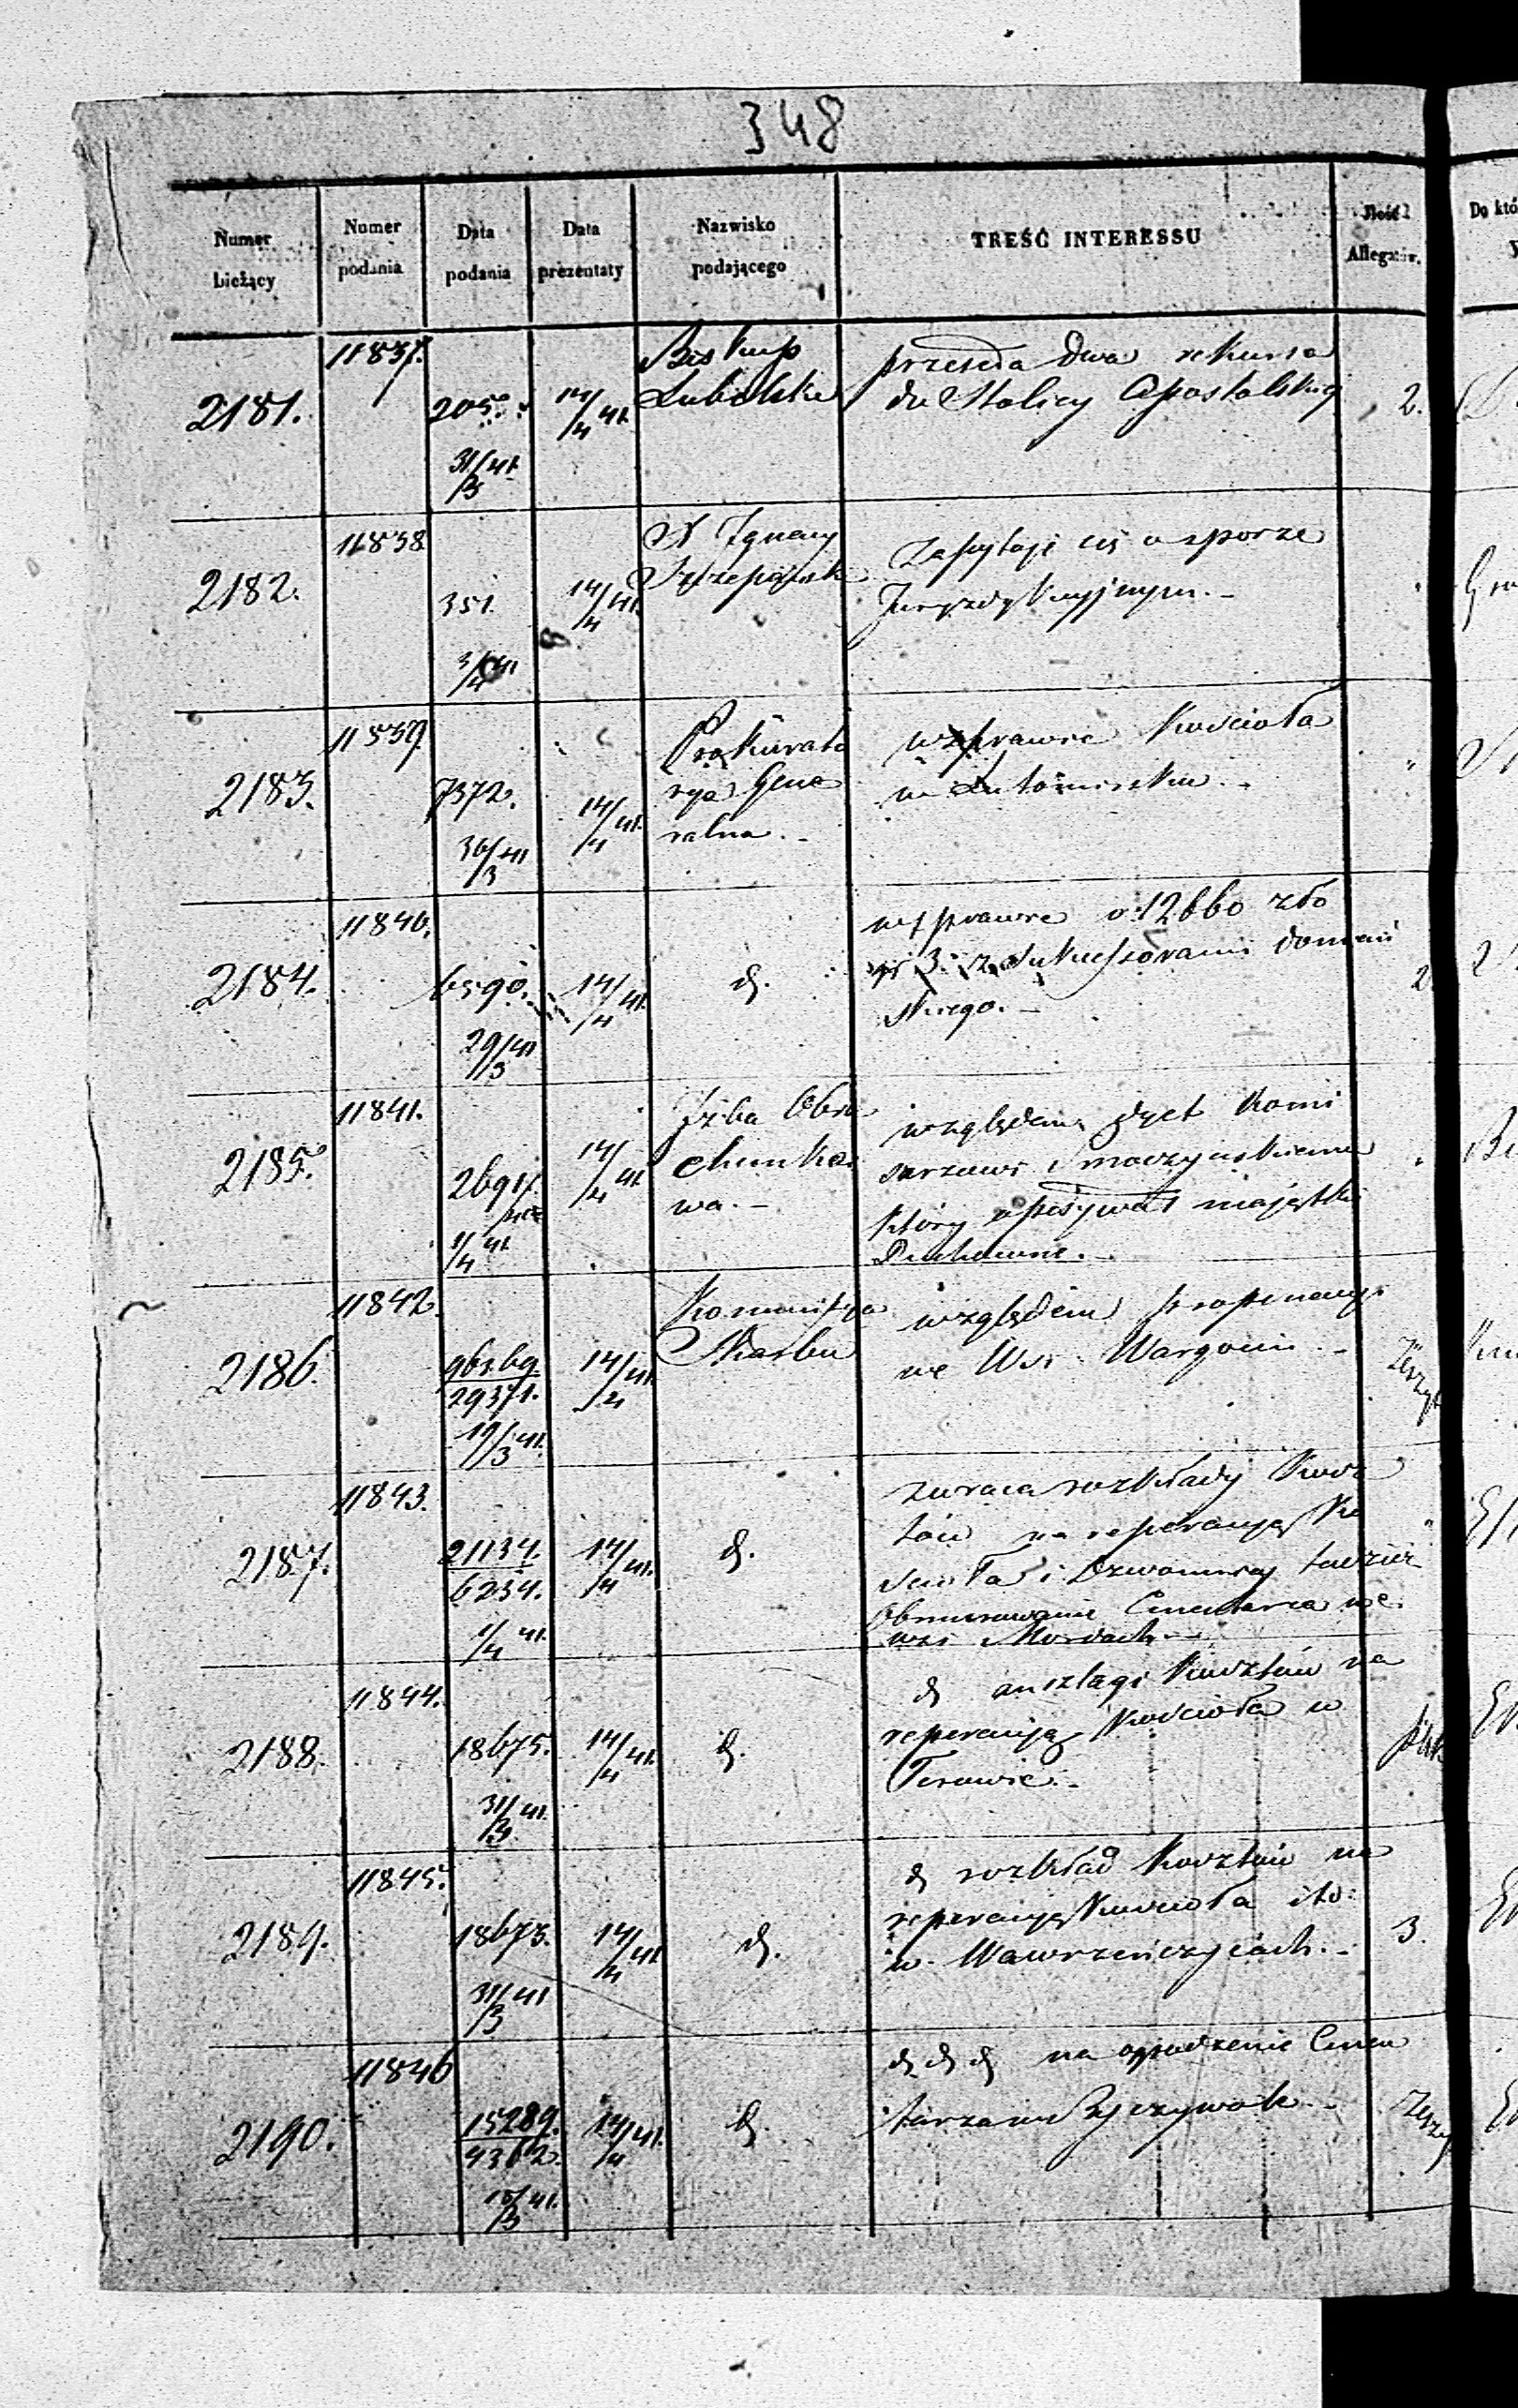 348
Numer bieżący
Numer podania
Data podania
Data prezentaty
Nazwisko podającego
TREŚĆ INTERESSU
Ilość Allegatów.
Do któ
2181.
11837.
205.
31/3 41
14/4 41.
Biskup
Lubelski
przeseła dwa rekursa
do Stolicy Apostolskiej
2.
2182.
11838
351.
3/4 41
14/4 41.
X Ignacy
Szczepański
Zapytuje się o sporze
Juryzdykcyjnym. -
"
2183.
11839
7372.
30/3 41
14/4 41.
Prokurato
rya Gene
ralna. -
w sprawie Kościoła
w Lutomirsku. -
"
2184.
11840.
6590.
29/3 41
14/4 41.
d.
w sprawie o 12660 zło
z Sukcessorami Domań
skiego. -
2.
2185.
11841.
2691.
1/4 41
14/4 41
Izba Obra
chunko
wa. -
względem dyet Komi
sarzowi Smoczyńskiemu
który opisywał majątki
Duchowne. -
2186.
11842.
96569.
29371.
19/3 41.
14/4 41.
Kommissya
Skarbu
względem propinacyi
we Wsi Wargocin. -
Zeszyt
2187.
11843.
21134.
6234.
1/4 41.
14/4 41.
d.
zwraca rozkłady Kosz
tów na reperacyą Ko
ścioła i Dzwonnicy tudzież
Obmurowanie Cmentarza we
wsi Mordach. -
"
2188.
11844.
18675.
31/3 41.
14/4 41.
d.
d anszlagi Kosztów na
reperacyją Kościoła w
2189.
11845.
18673.
31/3 41
14/4 41
d.
d rozkład Kosztów na
reperacyją Kościoła itd:
w Wawrzeńczycach. -
3.
2190.
11846
15289.
4362.
/3 41.
14/4 41.
d.
d d d na ogrodzenie Cmen
tarza w Ryczywole. -
Zeszyt